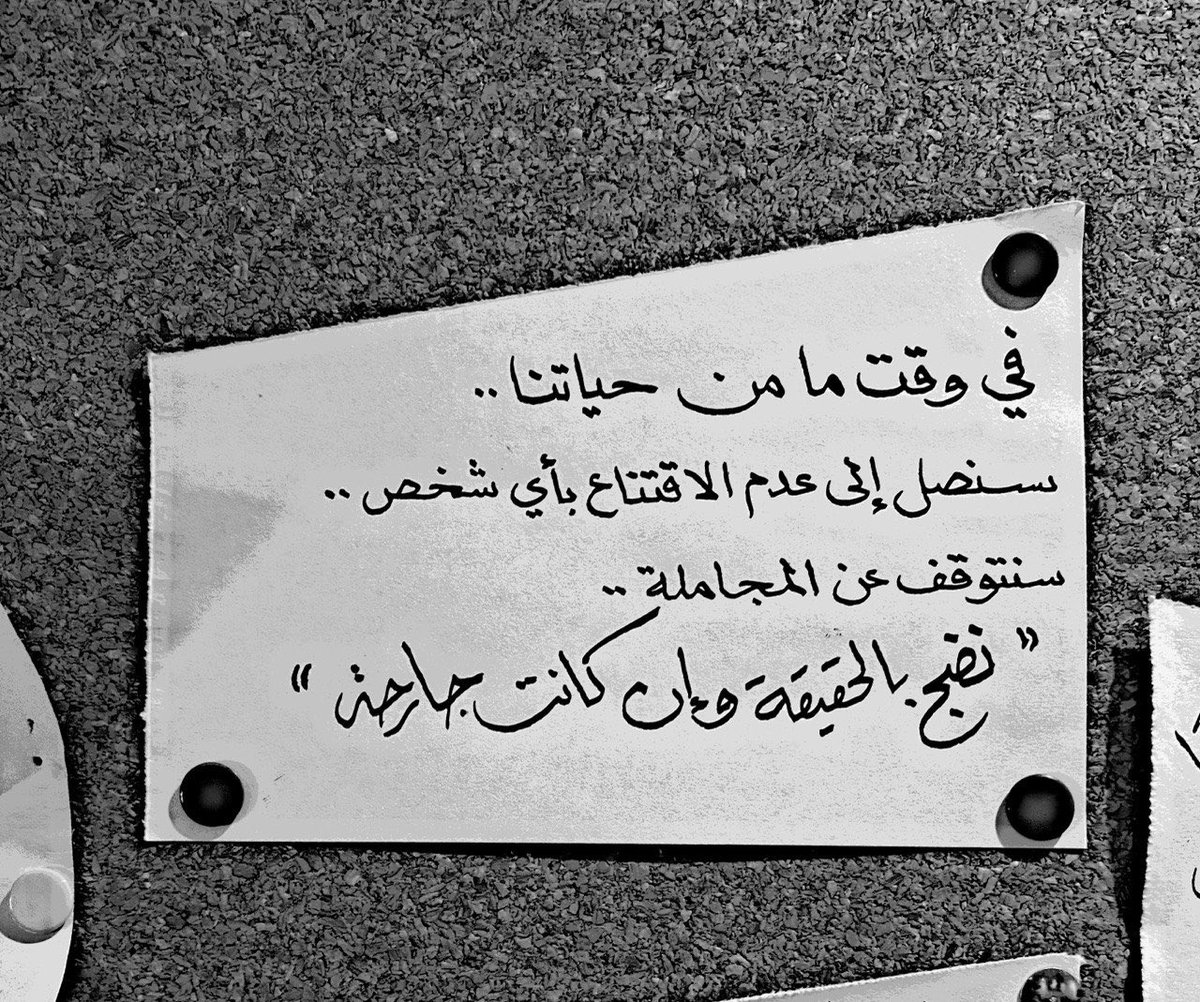 في وقت ما من حياتنا ..
سنصل إلى عدم الاقتناع بأي شخص ..
سنتوقف عن المجاملة ..
" نضج بالحقيقة وإن كانت جارحة "